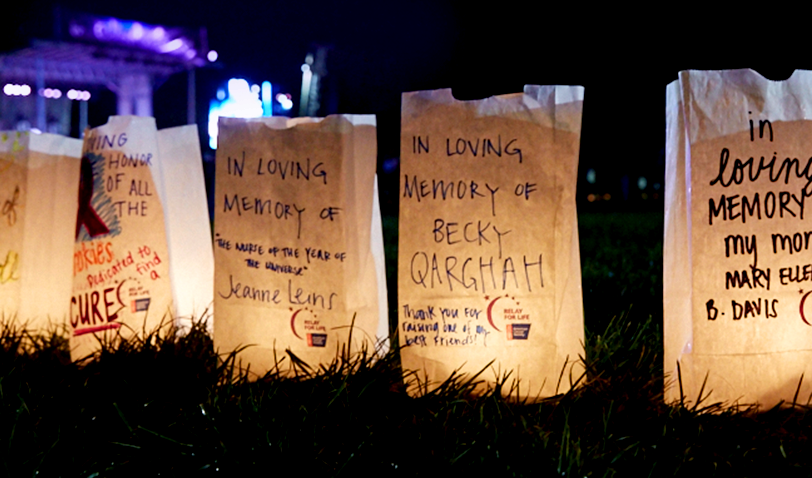 VING
HONOR
OF ALL
THE
ookies
Dedicated to
find
a
CURE
IN LOVING
MEMORY OF
"THE NURSE OF THE YEAR OF
THE UNIVERSE"
Jeanne Leins
RELAY
FOR LIFE
IN LOVING
MEMORY OF
BECKY
QARGHAH
Thank you for
raising one of my
best friends!
RELAY
FOR LIFE
in
loving
MEMORY
my mor
MARY ELLE
B. DAVIS